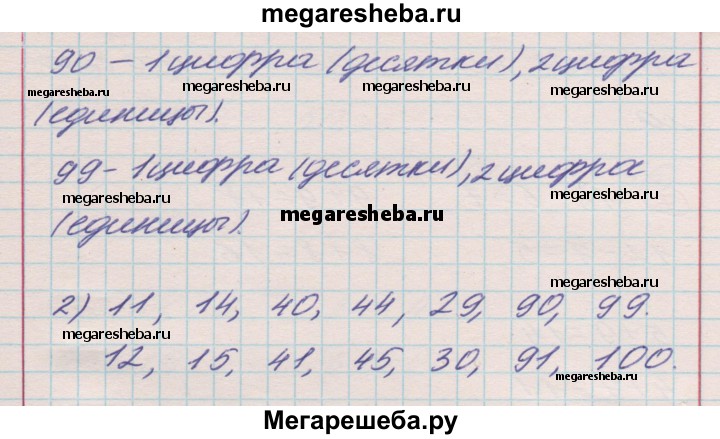 megaresheba.ru
90 – 1 цифра (десятки), 2 цифра
megaresheba.ru megaresheba.ru megaresheba.ru megaresheba.ru
(единицы).
99 - 1 цифра (десятки), 2 цифра
megaresheba.ru megaresheba.ru megaresheba.ru
(единицы).
megaresheba.ru
2) 11, 14, 40, 44, 29, 90, 99.
megaresheba.ru
12, 15, 41, 45, 30, 91, 100.
megaresheba.ru
Мегарешеба.ру